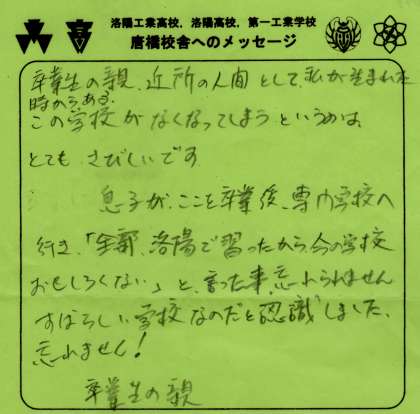 洛陽工業高校，洛陽高校，第一工業学校
唐橋校舎へのメッセージ
卒業生の親、近所の人間として、私が生まれた
時からある
この学校がなくなってしまうというのは、
とてもさびしいです
息子が、ここを卒業後、専門学校へ
行き、「全部、洛陽で習ったから、今の学校
おもしろくない」と、言った事、忘れられません
すばらしい学校なのだと認識しました、
忘れません！
卒業生の親